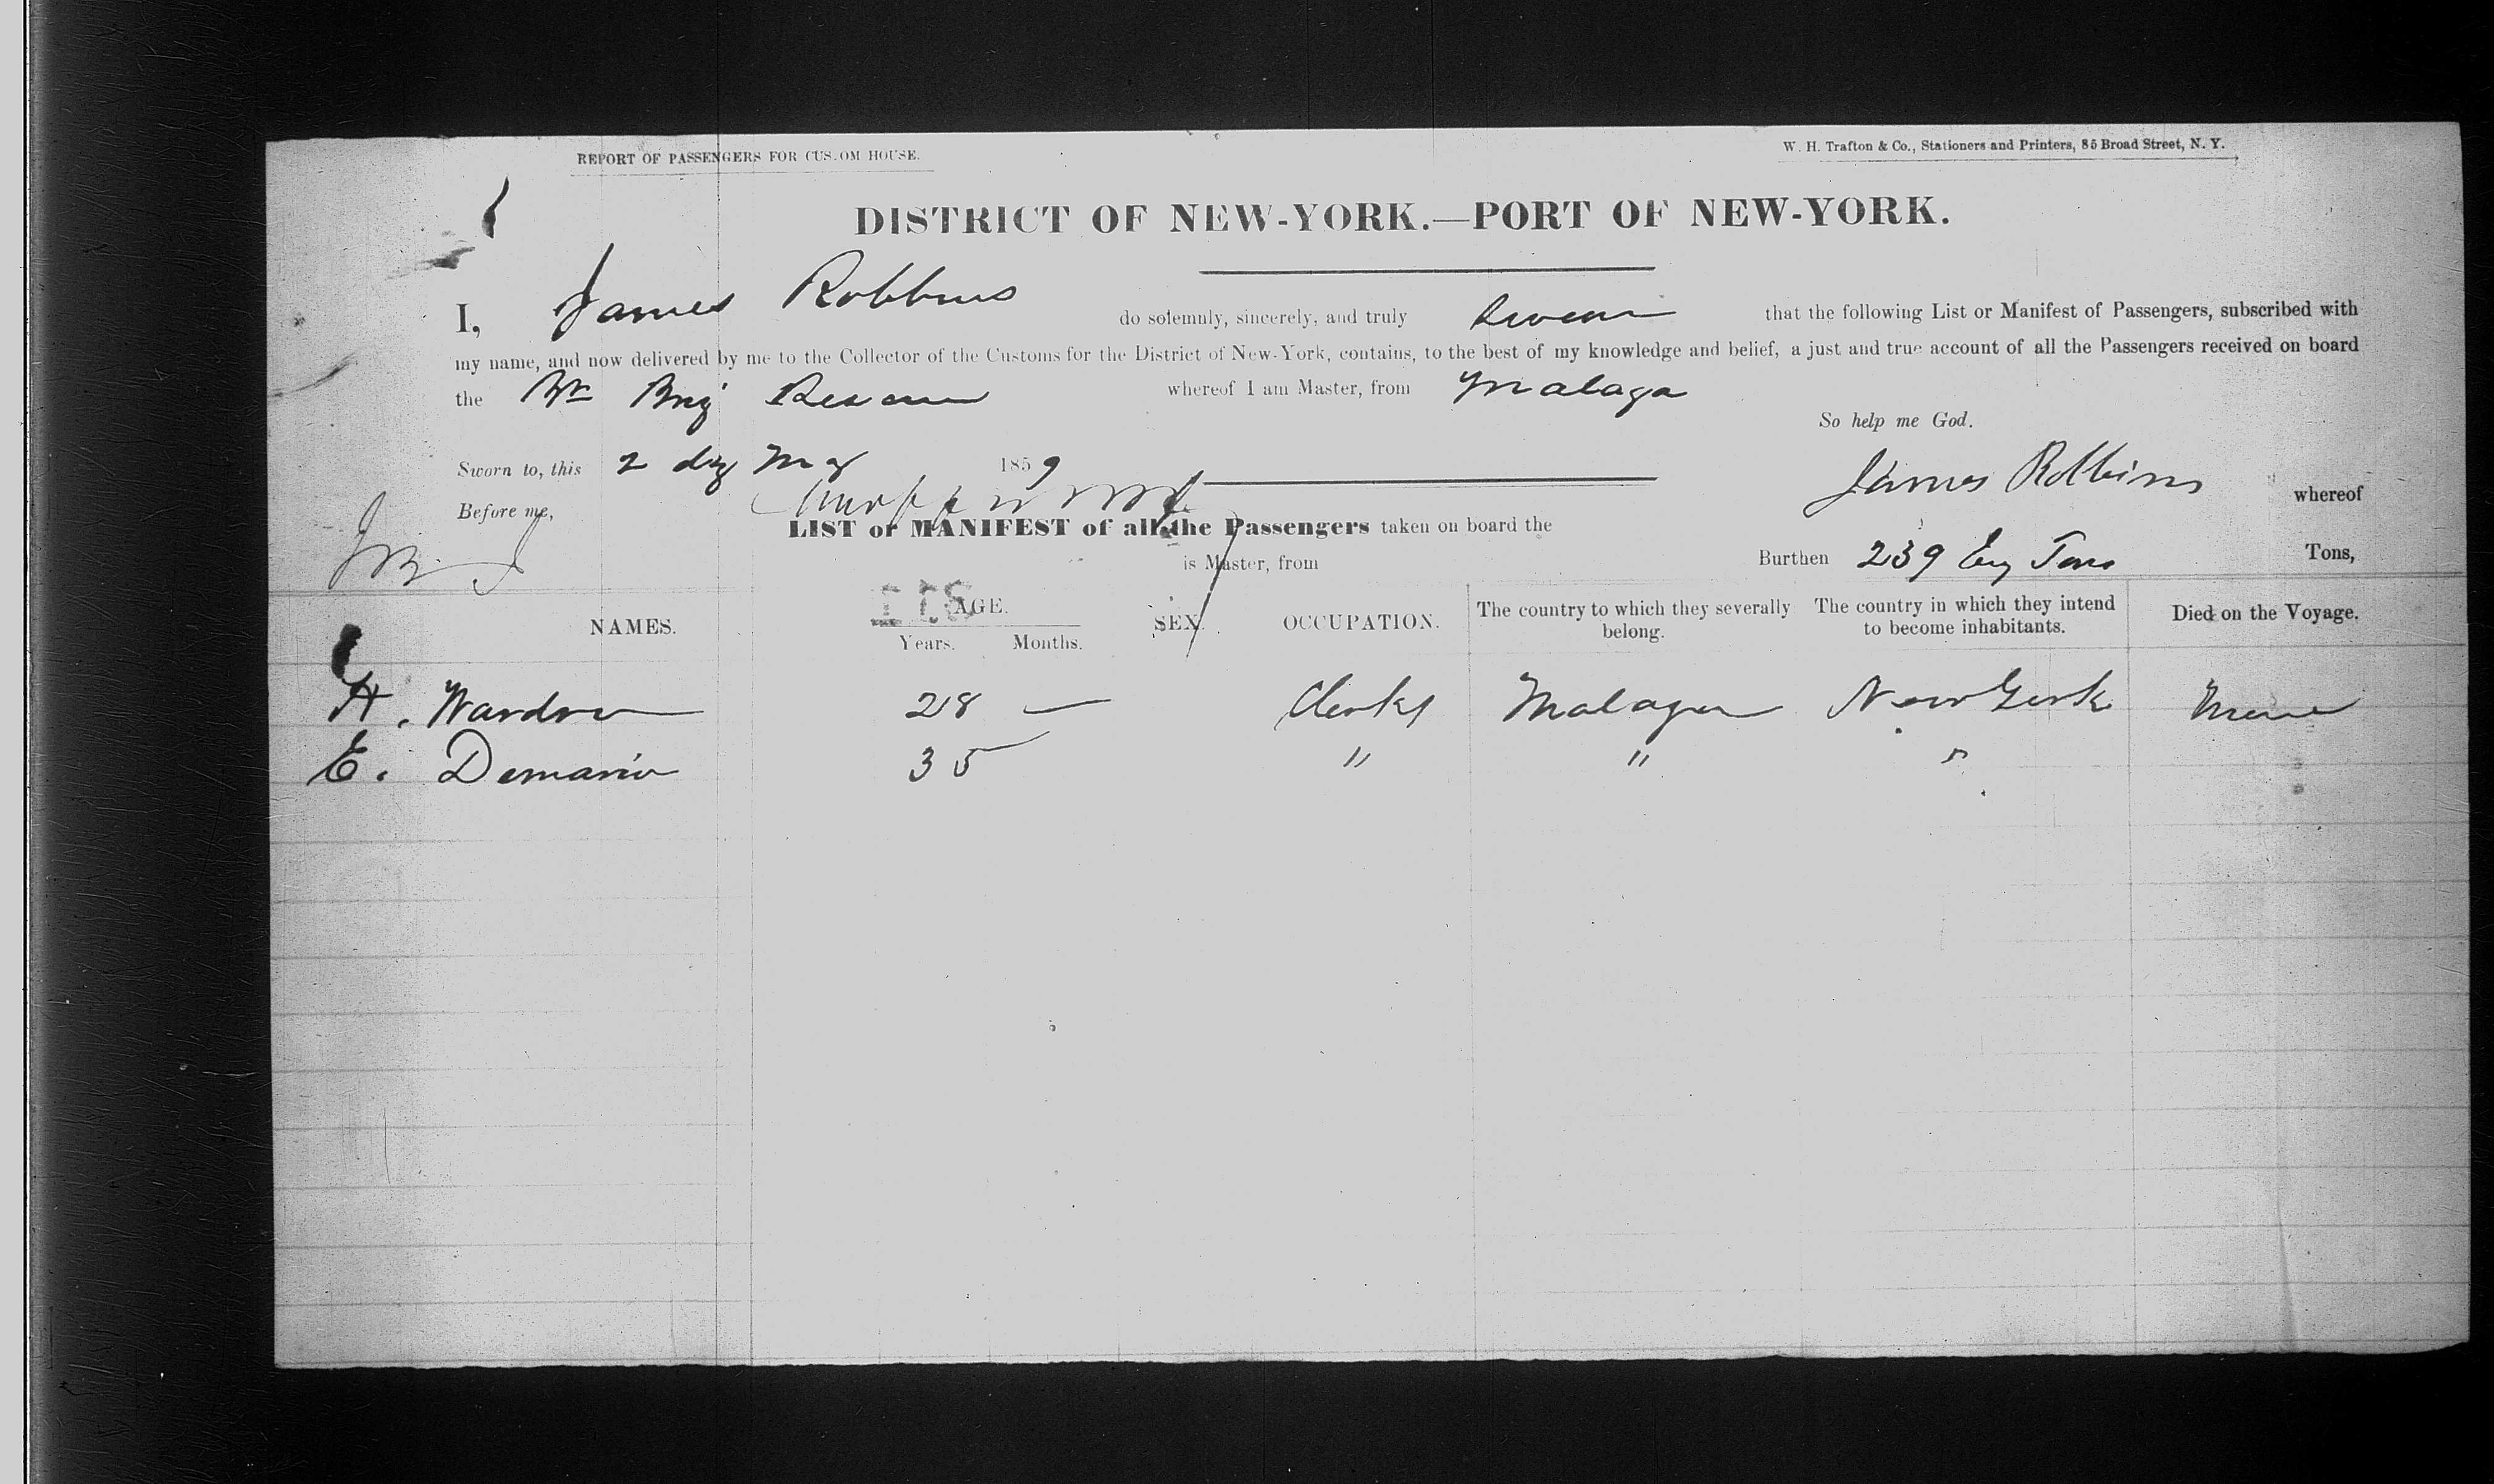 REPORT OF PASSENGERS FOR CUSTOM HOUSE.
W. H. Trafton & Co., Stationers and Printers, 85 Broad Street, N. Y.
DISTRICT OF NEW-YORK.—PORT OF NEW-YORK.
I, James Robbins do solemnly, sincerely, and truly swear that the following List or Manifest of Passengers, subscribed with
my name, and now delivered by me to the Collector of the Customs for the District of New-York, contains, to the best of my knowledge and belief, a just and true account of all the Passengers received on board
the Br Brig whereof I am Master, from Malaga
So help me God.
Sworn to, this 2 day May 1859
James Robbins whereof
Before me,
LIST or MANIFEST of all the Passengers taken on board the
is Master, from Burthen 239 Eng Tons Tons,
NAMES. AGE. Years. Months. SEX. OCCUPATION. The country to which they severally belong. The country in which they intend to become inhabitants. Died on the Voyage.
H. 28 — Clerks Malaga New York None
E. 35 — " " "